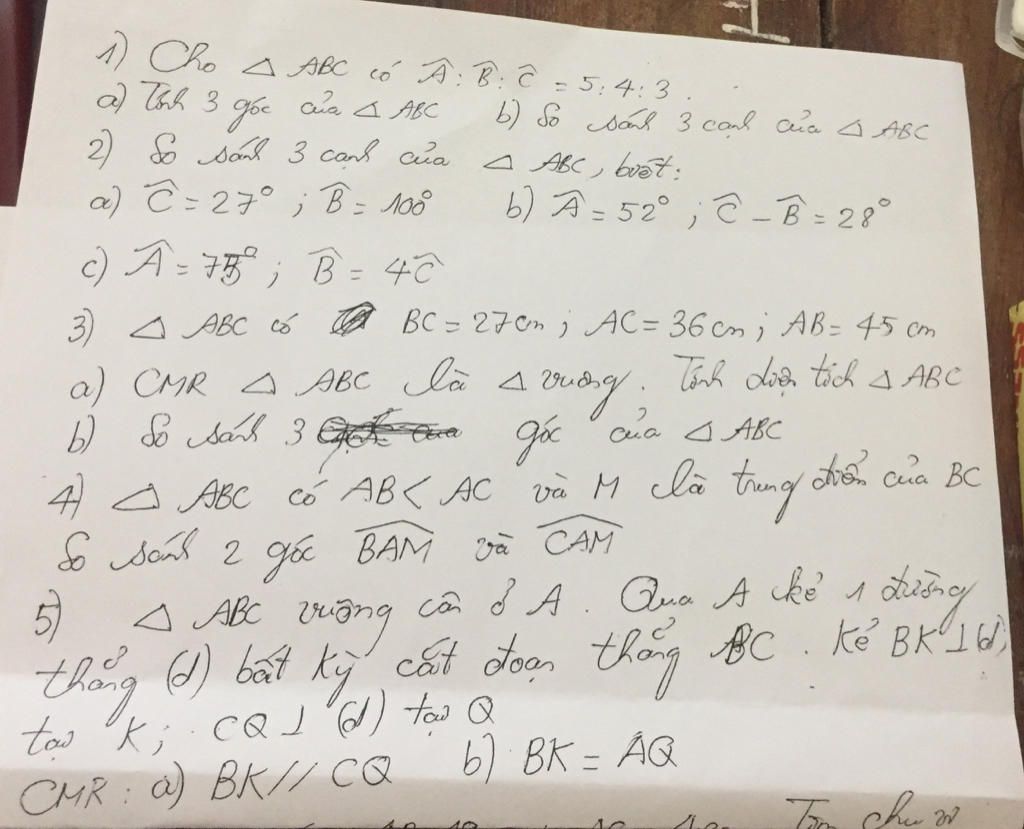 1) Cho △ ABC có Â : B̂ : Ĉ = 5 : 4 : 3.
a) Tính 3 góc của △ ABC b) So sánh 3 cạnh của △ ABC
2) So sánh 3 cạnh của △ ABC, biết:
a) Ĉ = 27° ; B̂ = 100° b) Â = 52° ; Ĉ - B̂ = 28°
c) Â = 75° ; B̂ = 4Ĉ
3) △ ABC có BC = 27cm ; AC = 36cm ; AB = 45 cm
a) CMR △ ABC là △ vuông. Tính diện tích △ ABC
b) So sánh 3 góc của △ ABC
4) △ ABC có AB < AC và M là trung điểm của BC
So sánh 2 góc BAM và CAM
5) △ ABC vuông cân ở A. Qua A kẻ 1 đường
thẳng (d) bất kỳ cắt đoạn thẳng BC. Kẻ BK ⊥ (d)
tại K; CQ ⊥ (d) tại Q
CMR: a) BK // CQ b) BK = AQ